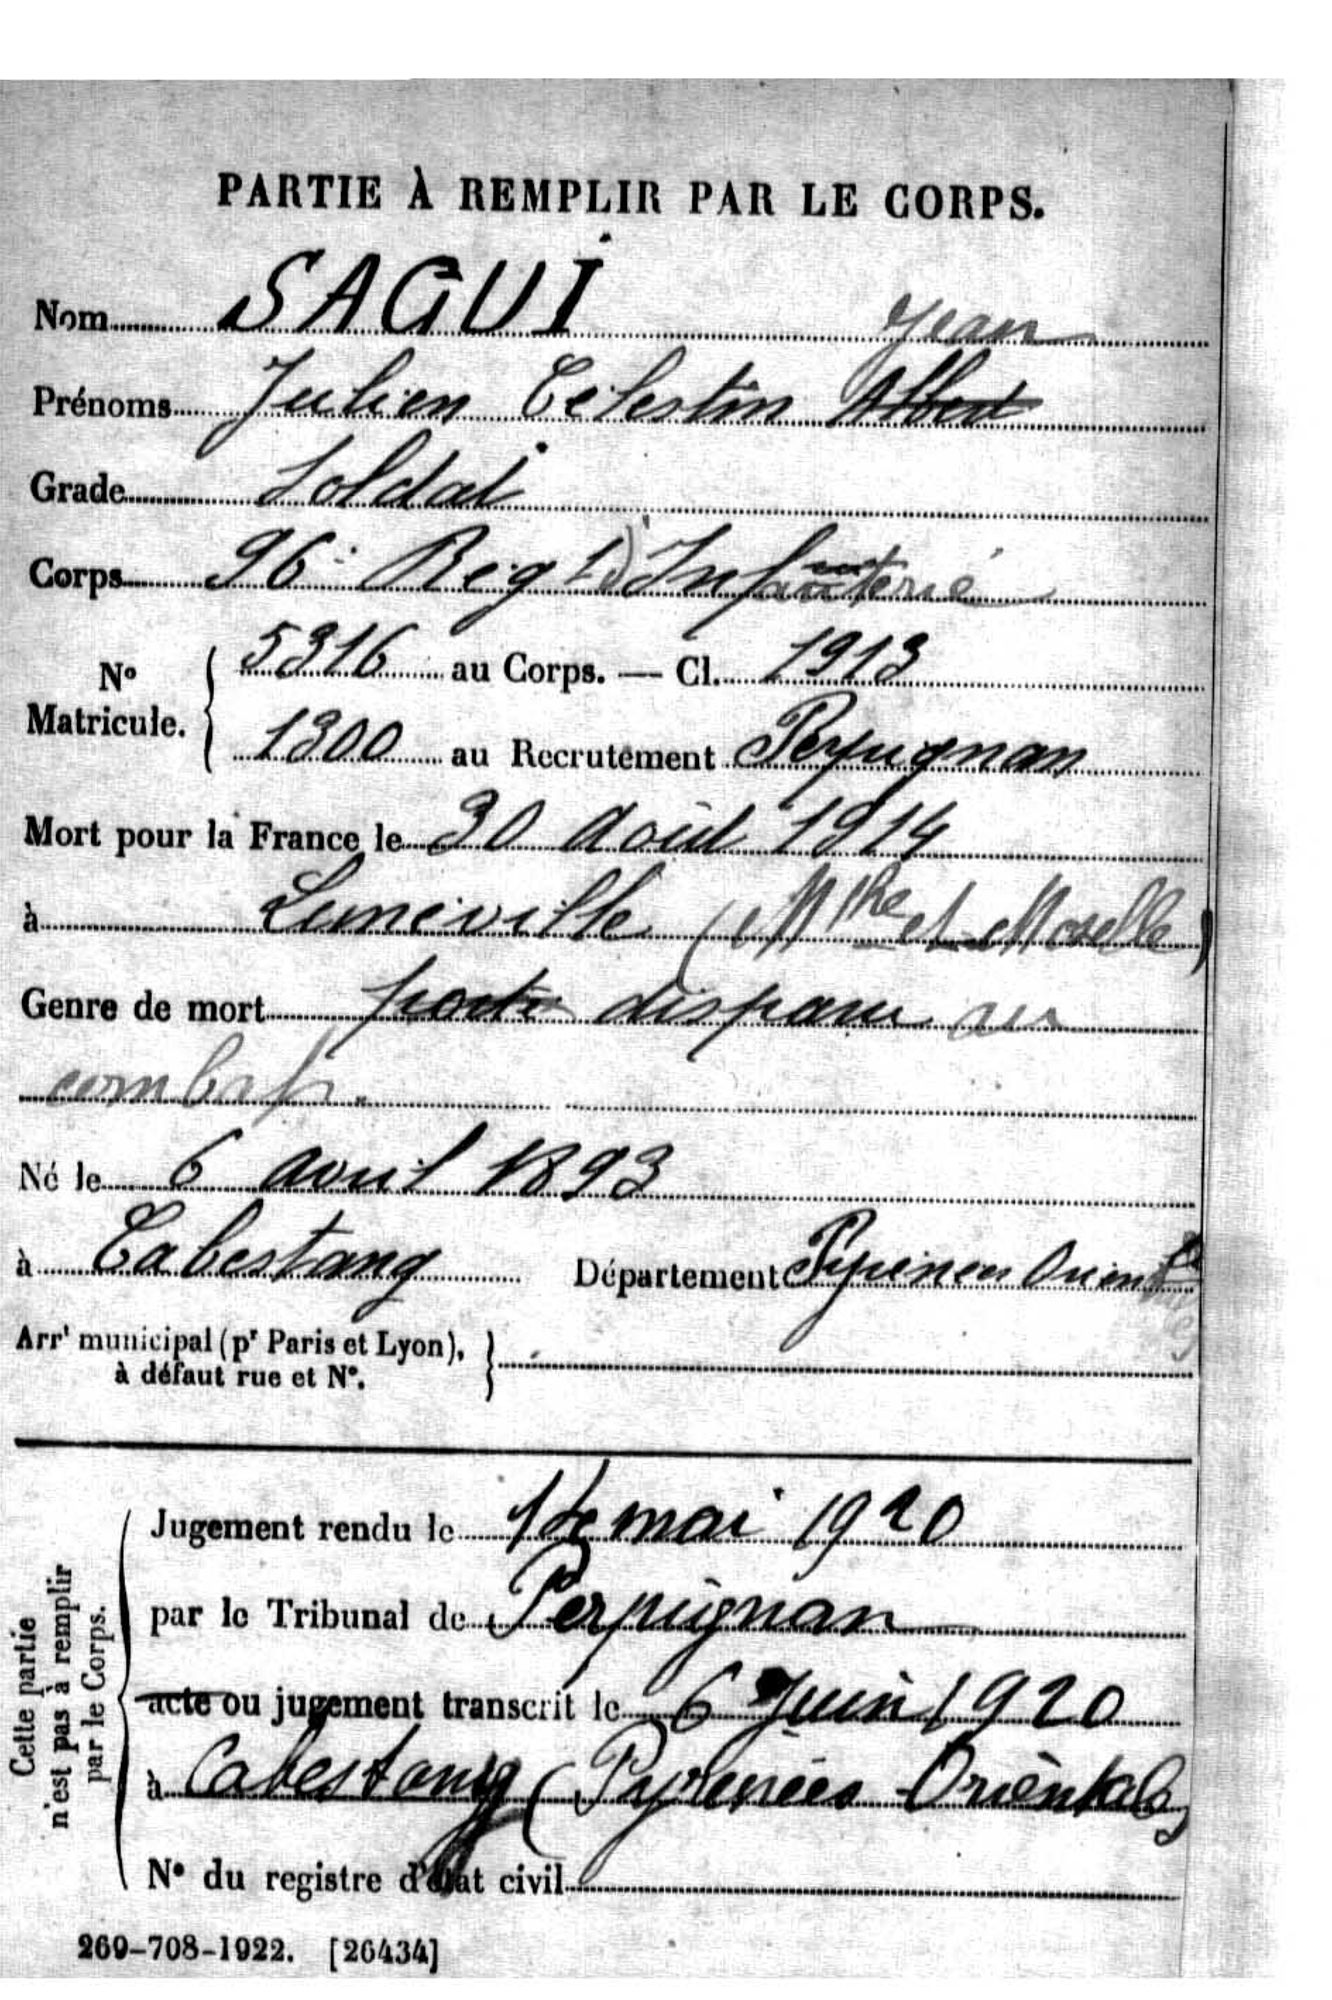 PARTIE À REMPLIR PAR LE CORPS.
Nom SAGUI Jean
Prénoms Julien Celestin Albert
Grade Soldat
Corps 96e Regt d'Infanterie
No Matricule. 5316 au Corps. — Cl. 1913
1300 au Recrutement Perpignan
Mort pour la France le 30 Août 1914
à Luneville (Mthe et Moselle)
Genre de mort porté disparu au
combat.
Né le 6 avril 1893
à Cabestang Département Pyrenees Orient
Arrt municipal (pr Paris et Lyon),
à défaut rue et No.
Cette partie
n'est pas à remplir
par le Corps.
Jugement rendu le 14 mai 1920
par le Tribunal de Perpignan
acte ou jugement transcrit le 6 Juin 1920
à Cabestany (Pyrénées-Orientales
No du registre d'état civil
269-708-1922. [26434]